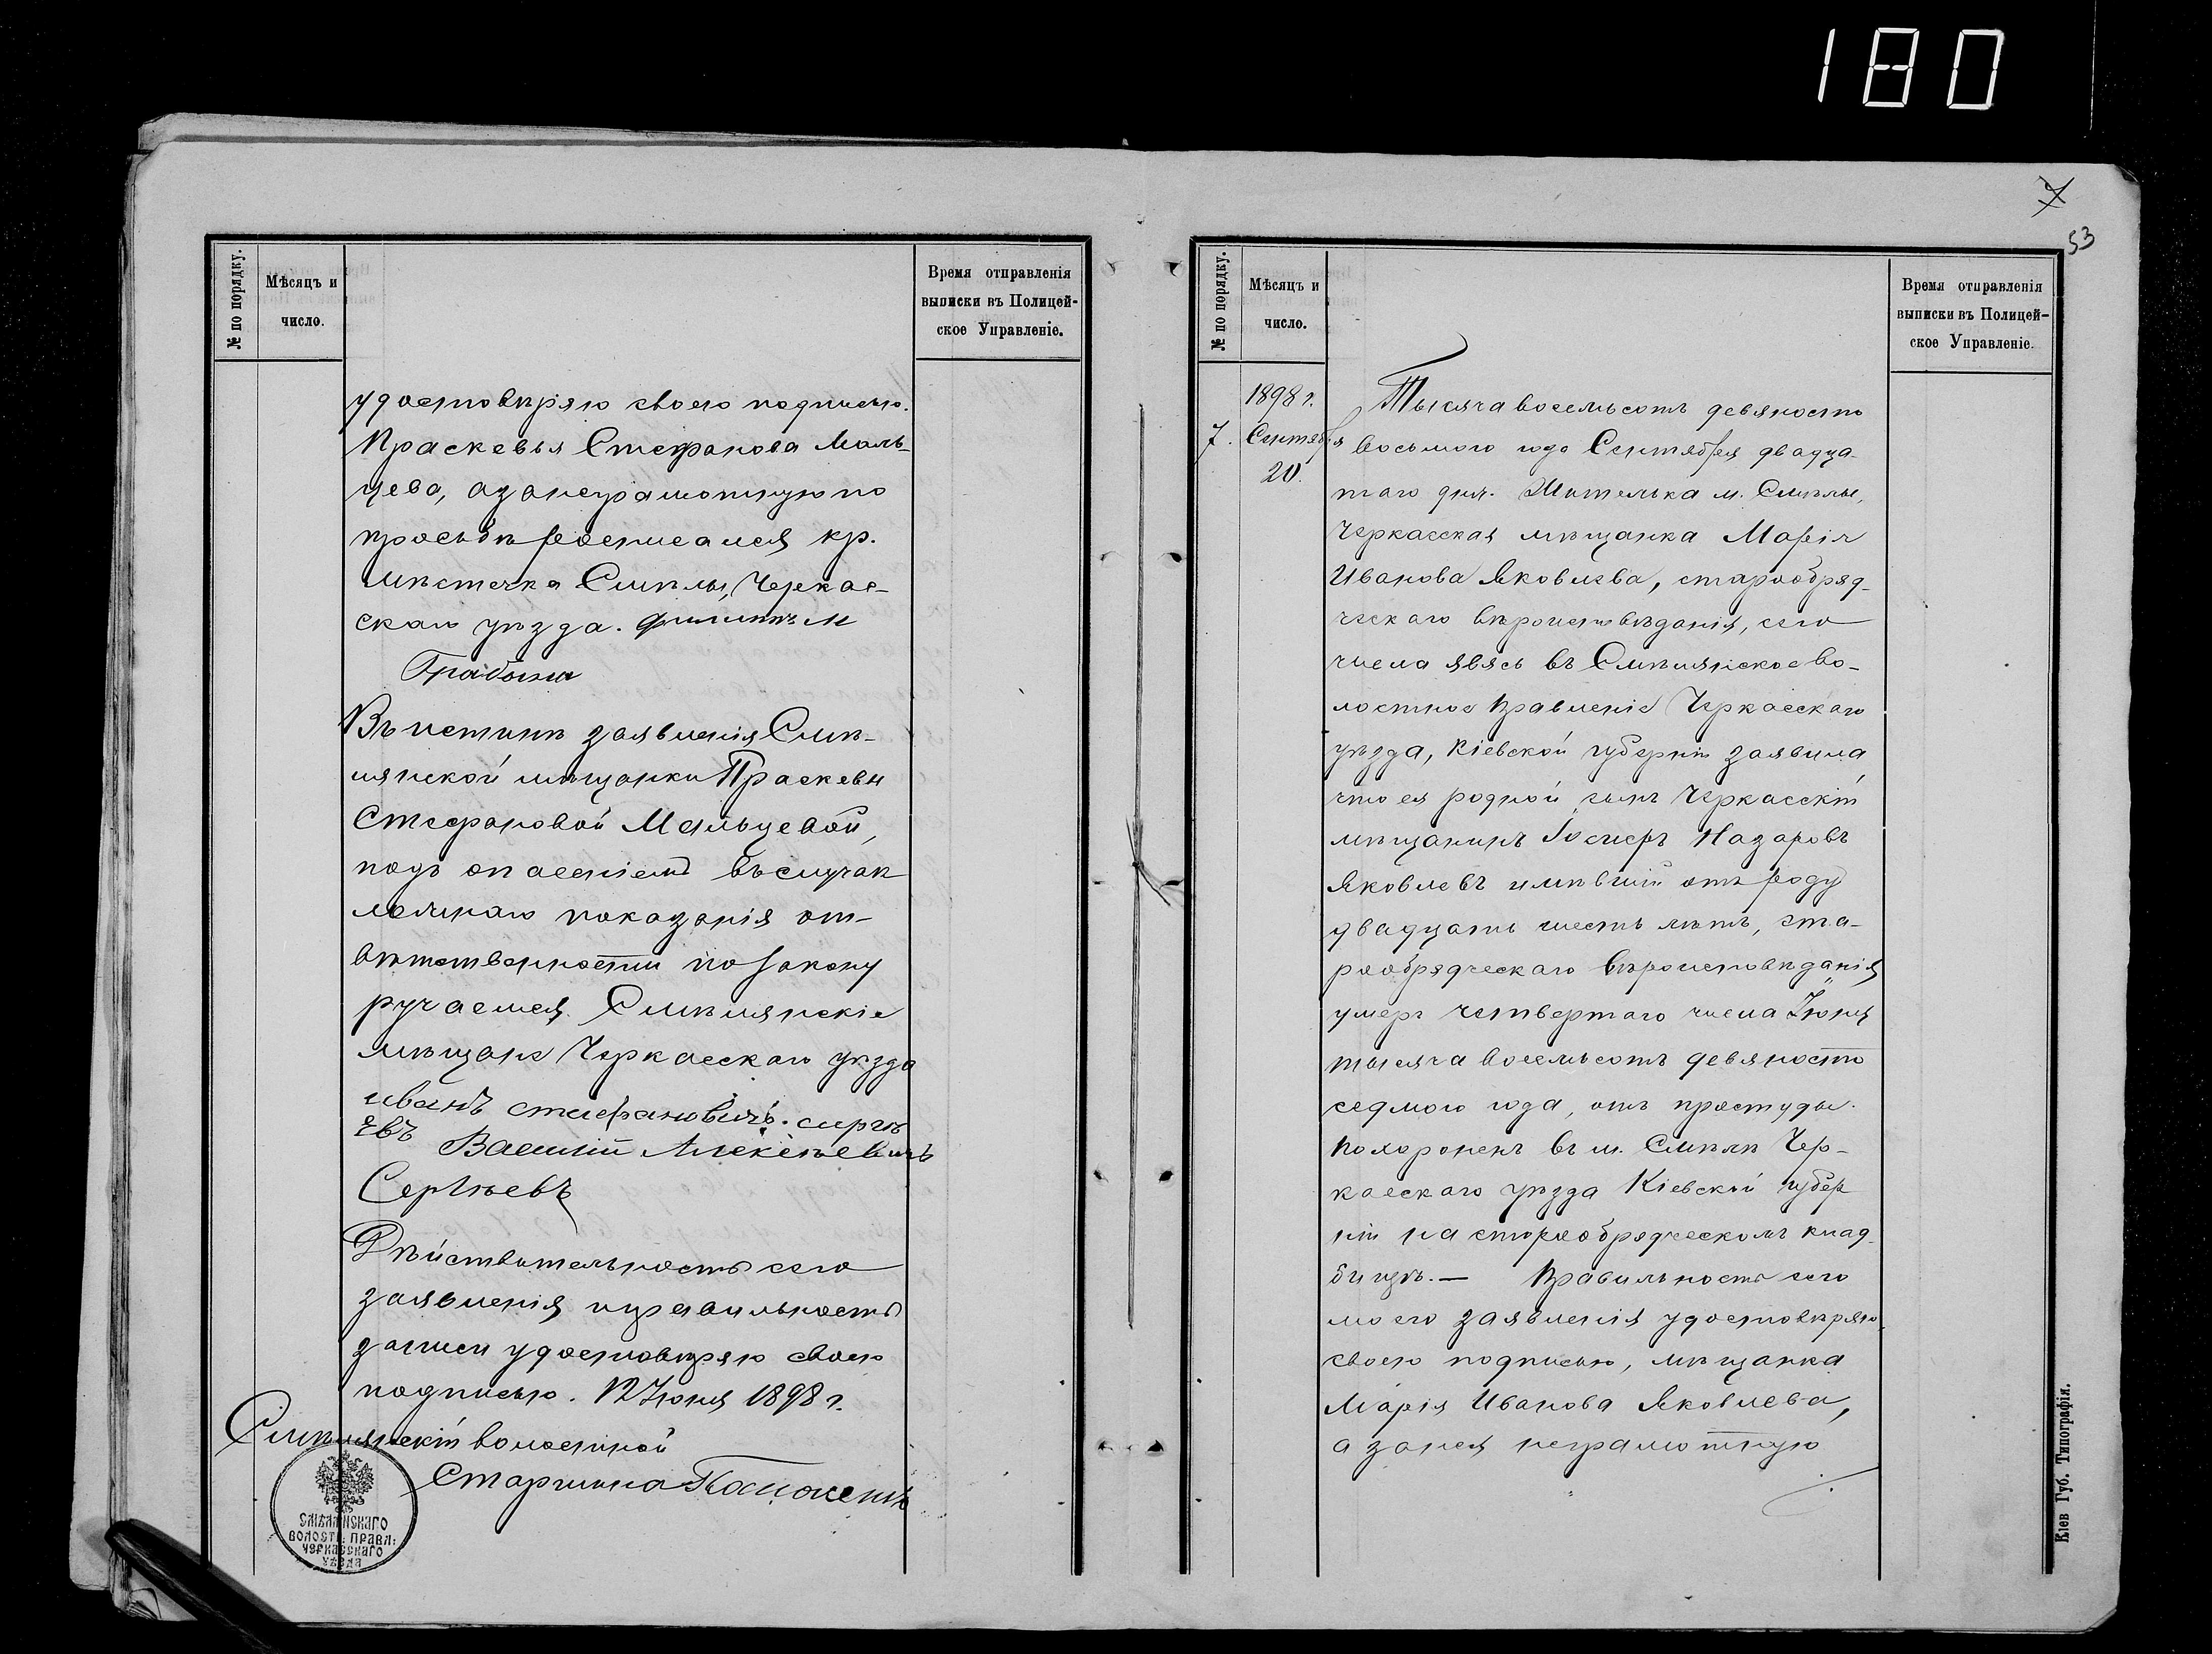 180
7
53
№ по порядку.
Мѣсяцъ и
число.
Время отправленія
выписки въ Полицей-
ское Управленіе.
удостовѣряю своею подписью.
Праскевья Стефанова Маль-
цева, а за неграмотную по
просьбѣ росписался кр.
мѣстечка Смѣлы, Черкас-
скаго уѣзда. Филиппъ М
Въ истинѣ заявленія Смѣ-
лянской мѣщанки Праскевы
Стефановой Мальцевой,
подъ опасеніемъ въ случаѣ
ложнаго показанія от-
вѣтственности по закону
ручаемся Смѣлянскіе
мѣщане Черкасскаго уѣзда
иванъ стефановичъ сергѣ
евъ Василій Алексѣевичъ
Сергѣевъ
Дѣйствительность сего
заявленія и правильность
записи удостовѣряю своею
подписью. 12 Іюня 1898 г.
Смѣлянскій волостной
Старшина
СМѢЛЯНСКАГО
ВОЛОСТН. ПРАВЛ.
ЧЕРКАССКАГО
УѢЗДА
№ по порядку.
Мѣсяцъ и
число.
Время отправленія
выписки въ Полицей-
ское Управленіе.
1898 г.
7. Сентября
20.
Тысяча восемьсотъ девяносто
восьмого года Сентября двадца-
таго дня. Жителька м. Смѣлы,
Черкасская мѣщанка Марія
Иванова Яковлева, старообряд-
ческаго вѣроисповѣданія, сего
числа явясь въ Смѣлянское Во-
лостное Правленіе Черкасскаго
уѣзда, Кіевской губерніи заявила
что ея родной сынъ Черкасскій
мѣщанинъ Іосифъ Назаровъ
Яковлевъ имѣвшій отъ роду
двадцать шесть лѣтъ, ста-
рообрядческаго вѣроисповѣданія
умеръ четвертаго числа Іюня
тысяча восемьсотъ девяносто
седмого года, отъ простуды.
Похороненъ въ м. Смѣлѣ Чер-
касскаго уѣзда Кіевской губер
ніи на старообрядческомъ клад-
бищѣ. — Правильность сего
моего заявленія удостовѣряю
своею подписью, мѣщанка
Марія Иванова Яковлева,
а за нея неграмотную
Кіев Губ. Типографія.